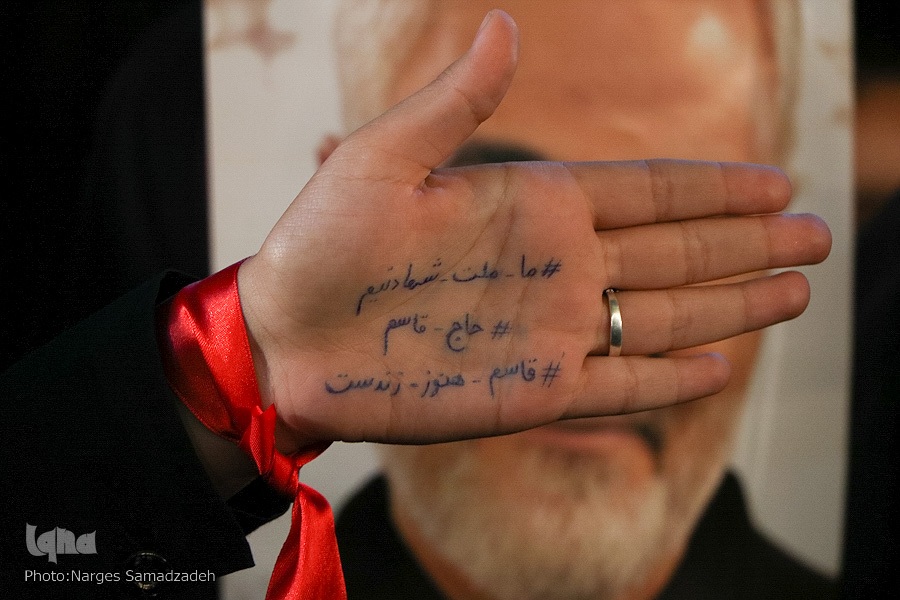 #ما_ملت_شهادتیم
#حاج_قاسم
#قاسم_هنوز_زندست
Iqna
Photo:Narges Samadzadeh